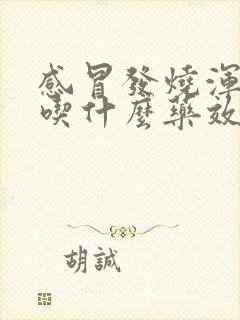 感冒發燒渾
喫什麼藥效
胡誠